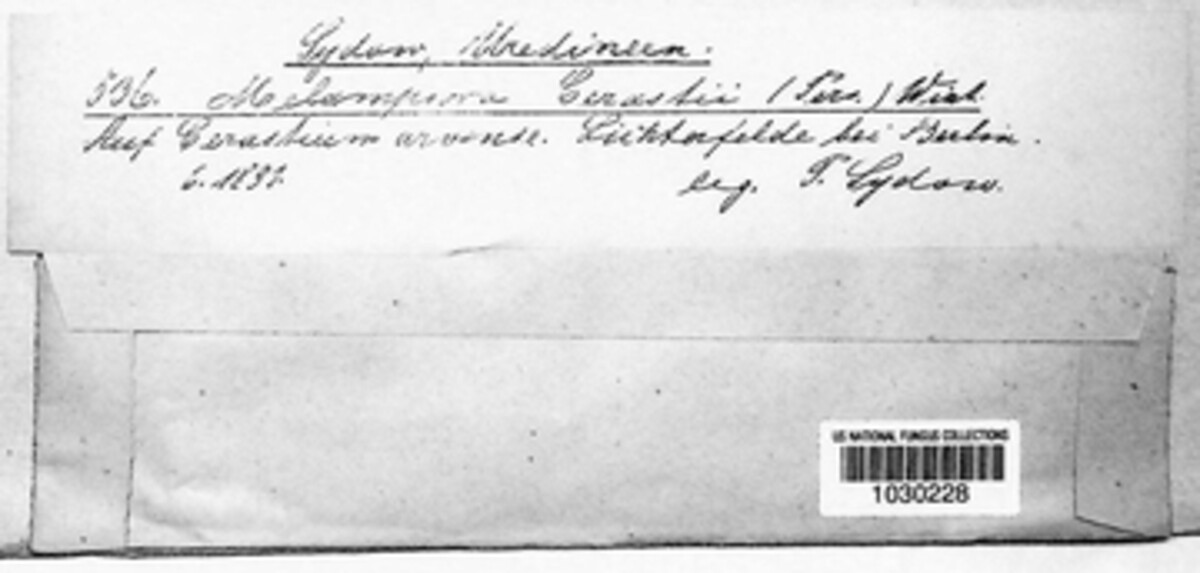 Sydow, Uredineen.
536. Melampsora Cerastii (Pers.) Wint.
Auf Cerastium arvense. Lichterfelde bei Berlin.
6. 1891. leg. P. Sydow.
US NATIONAL FUNGUS COLLECTIONS
1030228